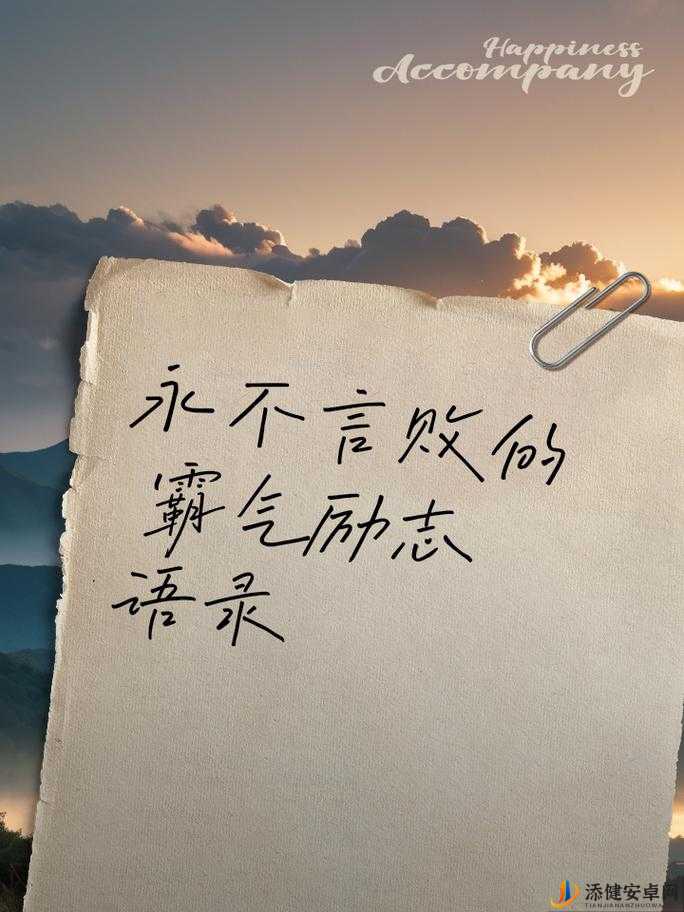 Happiness
Accompany
永不言败的
霸气励志
语录
添健安卓网
TIANJIANANZHUOWANG